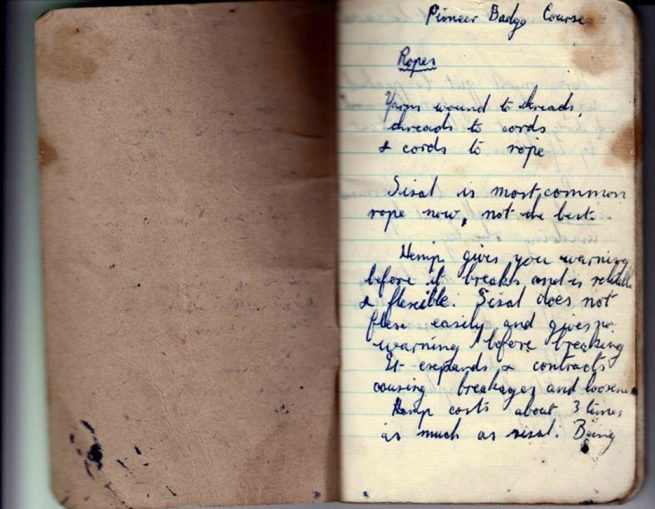 Pioneer Badge Course
Ropes
Yarns wound to threads,
threads to cords
& cords to rope
Sisal is most common
rope now, not the best.
Hemp gives you warning
before it breaks and is reliable
& flexible. Sisal does not
flex easily and gives no
warning before breaking
It expands & contracts
causing breakages and
Hemp costs about 3 times
as much as sisal. Being